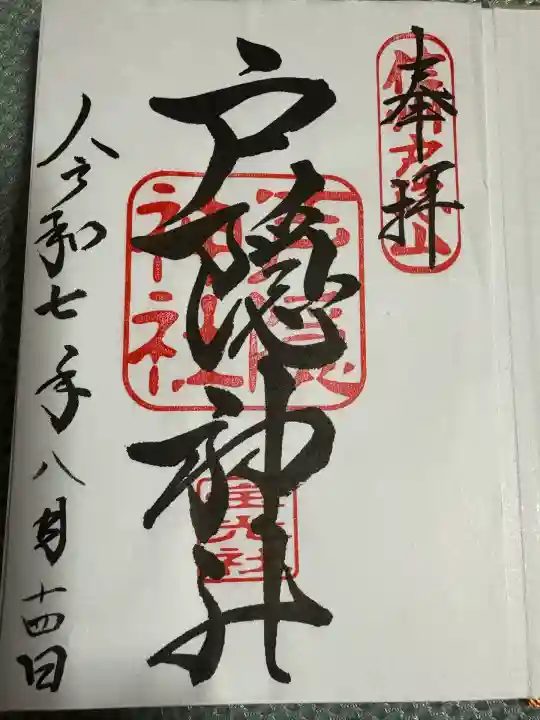 奉拝
信州戸隠山
戸隠神社
戸隠神社
宝光社
令和七年八月十四日